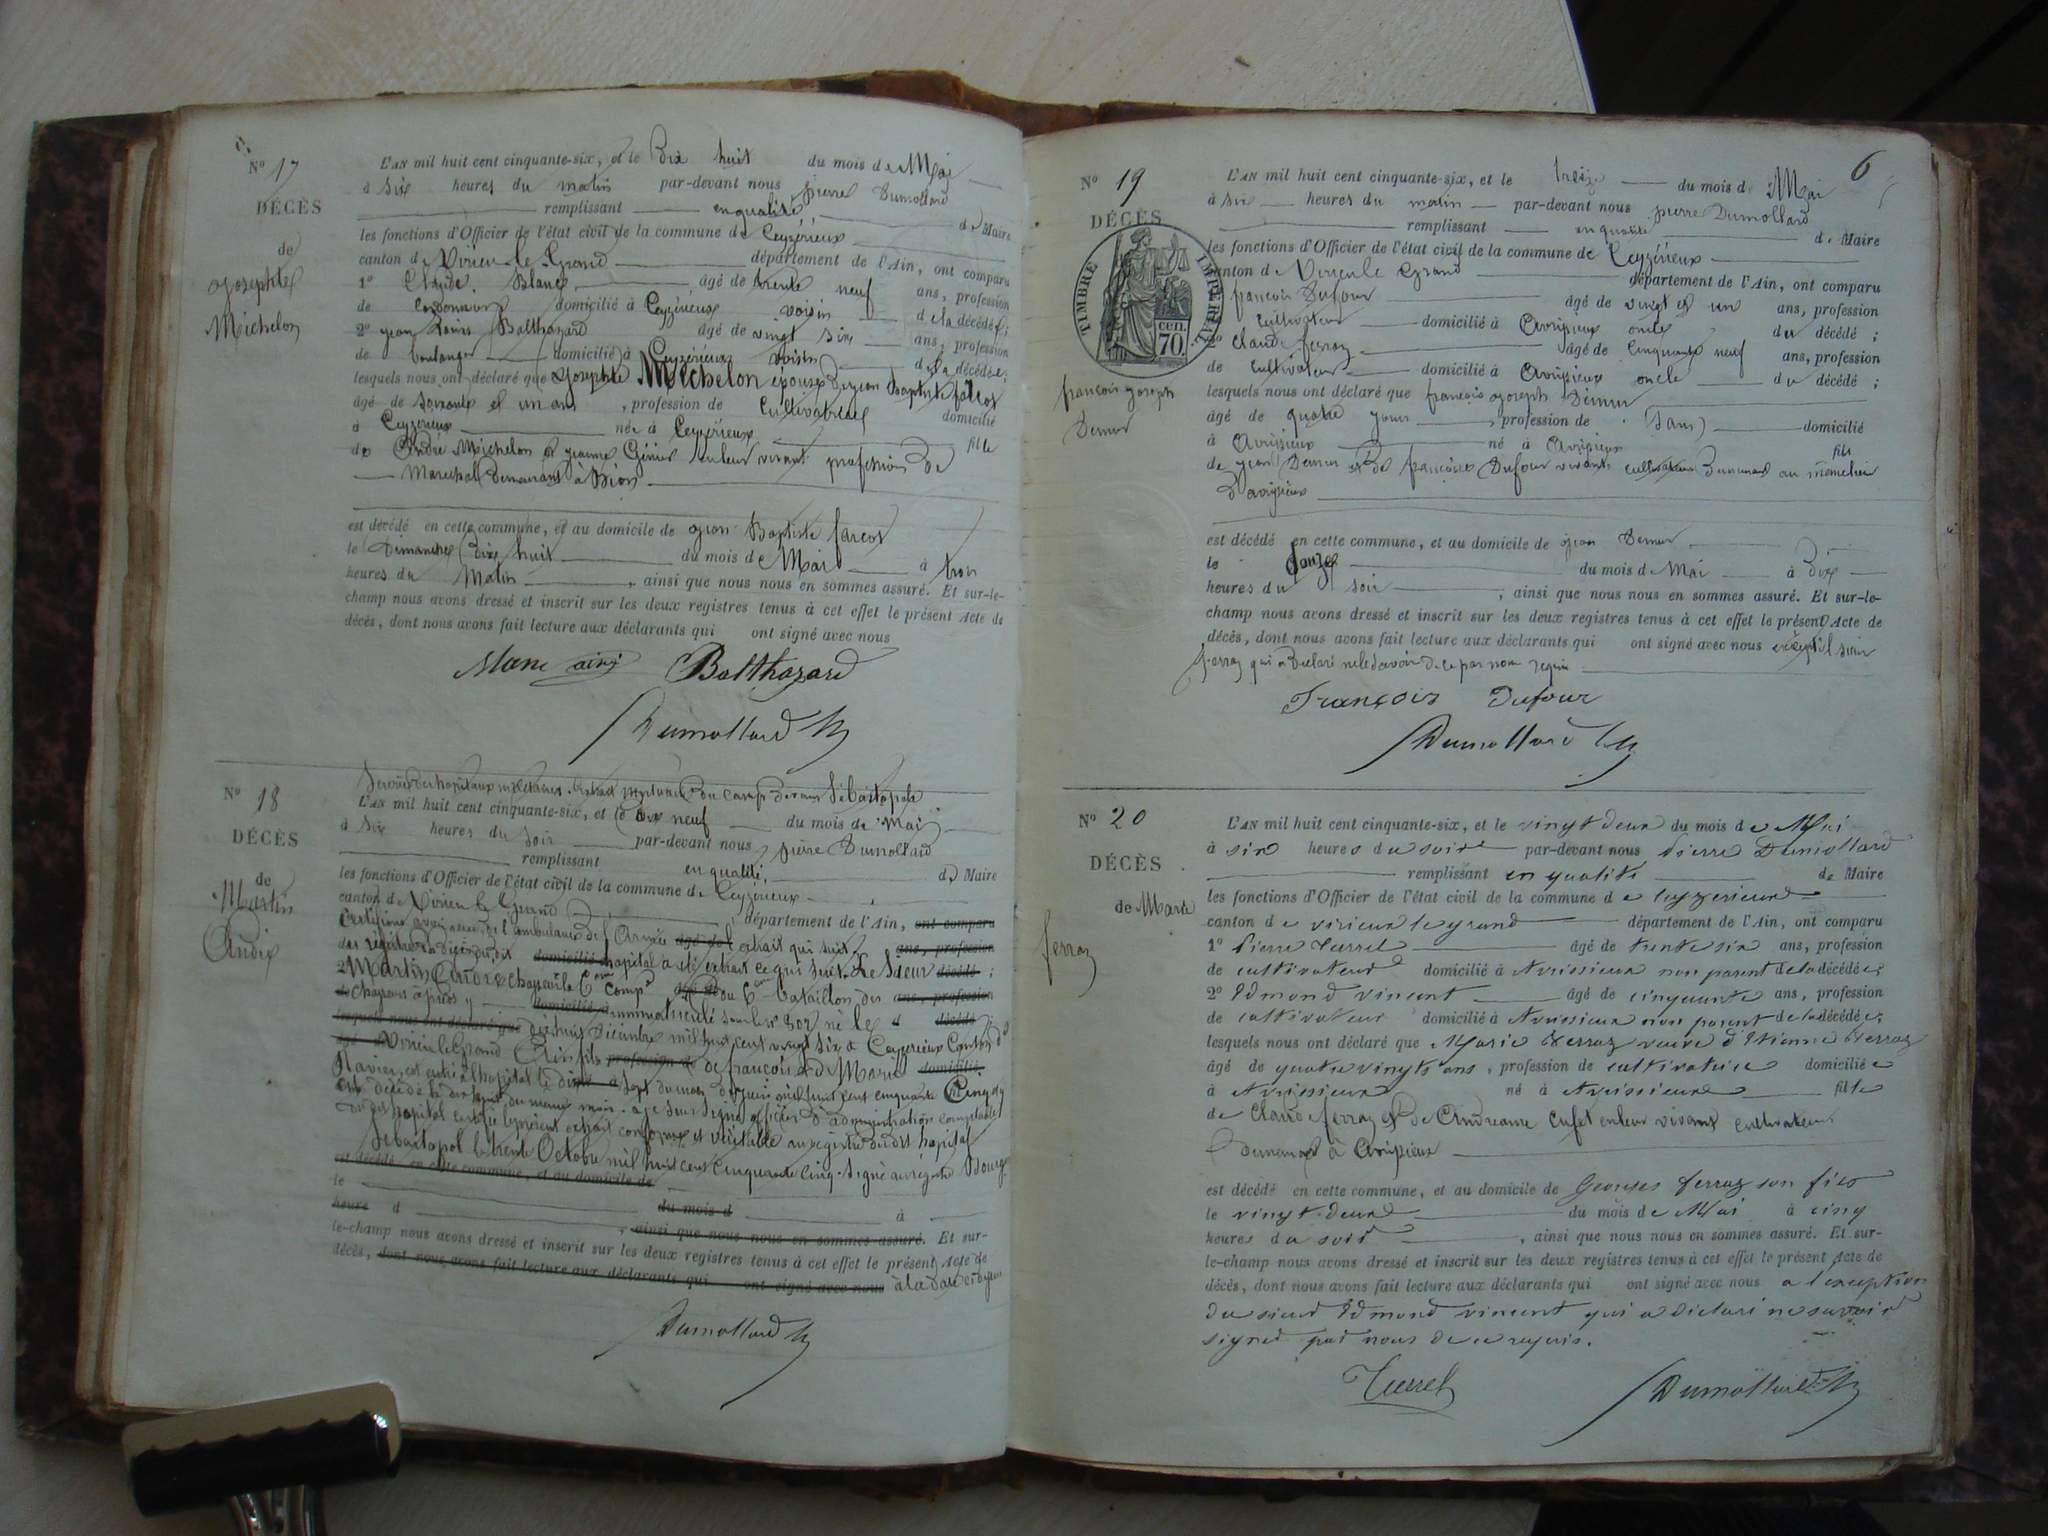 N° 17
DÉCÈS
de
Josephte
Michelon
L'AN mil huit cent cinquante-six, et le Dix huit du mois de Mai
à six heures du matin par-devant nous pierre Dumollard
remplissant en qualité de Maire
les fonctions d'Officier de l'état civil de la commune de Ceyzérieux
canton de Virieu le Grand département de l'Ain, ont comparu
1° Claude Blanc âgé de trente neuf ans, profession
de cordonnier domicilié à Ceyzérieux voisin de la décédée;
2° jean Louis Balthazard âgé de vingt six ans, profession
de boulanger domicilié à Ceyzérieux voisin de la décédée;
lesquels nous ont déclaré que Josephte Michelon épouse de jean Baptiste farcot
âgé de soixante et un ans, profession de Cultivatrice domicilié
à Ceyzérieux née à Ceyzérieux fille
de André Michelon et jeanne vivant profession de
Marechal Demeurant à
est décédé en cette commune, et au domicile de jean Baptiste farcot
le Dimanche Dix huit du mois de Mai à trois
heures du Matin, ainsi que nous nous en sommes assuré. Et sur-le-
champ nous avons dressé et inscrit sur les deux registres tenus à cet effet le présent Acte de
décès, dont nous avons fait lecture aux déclarants qui ont signé avec nous
Balthazard
Dumollard
N° 18
DÉCÈS
de
Martin
André
Service des hopitaux militaires. Extrait mortuaire du camp devant Sébastopol
L'AN mil huit cent cinquante-six, et le dix neuf du mois de Mai
à six heures du soir par-devant nous pierre Dumollard
remplissant en qualité de Maire
les fonctions d'Officier de l'état civil de la commune de Ceyzérieux
canton de Virieu le Grand département de l'Ain, ont comparu
de l'ambulance de l'Armée âgé de extrait qui suit ans, profession
des registres domicilié à hopital a été extrait ce qui suit. Le Sieur décédé;
2° Martin André 6me compe du 6me bataillon des ans, profession
de Chasseurs à pied domicilié à immatriculé sous le n° 302 né le d décédé;
lesquels nous ont déclaré que dix huit Décembre mil huit cent vingt six à Ceyzerieux Canton de
âgé Virieu le Grand Ain fils profession de de francois et de Marie domicilié
est entré à l'hopital le sept du mois de juin mil huit cent cinquante Cinq
est décédé le du meme mois. je sous signé officier d'administration comptable
du dit hopital certifie le présent extrait conforme et véritable au registre du dit hopital
Sébastopol le trente Octobre mil huit cent cinquante cinq. Signé au registre
est décédé en cette commune, et au domicile de
le
heure d du mois d à
, ainsi que nous nous en sommes assuré. Et sur-
le-champ nous avons dressé et inscrit sur les deux registres tenus à cet effet le présent Acte de
décès, dont nous avons fait lecture aux déclarants qui ont signé avec nous
Dumollard
6
N° 19
DÉCÈS
TIMBRE IMPÉRIAL
70 cen.
francois joseph
Demur
L'AN mil huit cent cinquante-six, et le treize du mois de Mai
à six heures du matin par-devant nous pierre Dumollard
remplissant en qualité de Maire
les fonctions d'Officier de l'état civil de la commune de Ceyzérieux
canton de Virieu le Grand département de l'Ain, ont comparu
francois Dufour âgé de vingt et un ans, profession
Cultivateur domicilié à Avrissieux oncle du décédé;
2° Claude ferraz âgé de Cinquante neuf ans, profession
de Cultivateur domicilié à Avrissieux oncle du décédé;
lesquels nous ont déclaré que francois joseph Demur
âgé de quatre jours, profession de Sans domicilié
à Avrissieux né à Avrissieux fils
de jean Demur et de francoise Dufour vivants cultivateurs Demeurant au
D'avrissieux
est décédé en cette commune, et au domicile de jean Demur
le Douze du mois de Mai à dix
heures du soir, ainsi que nous nous en sommes assuré. Et sur-le-
champ nous avons dressé et inscrit sur les deux registres tenus à cet effet le présent Acte de
décès, dont nous avons fait lecture aux déclarants qui ont signé avec nous excepté le sieur
ferraz qui a Déclaré ne le savoir de ce par nous requis
François Dufour
Dumollard
N° 20
DÉCÈS
de Marie
ferraz
L'AN mil huit cent cinquante-six, et le vingt deux du mois de Mai
à six heures du soir par-devant nous Pierre Dumollard
remplissant en qualité de Maire
les fonctions d'Officier de l'état civil de la commune de Ceyzerieux
canton de virieux le grand département de l'Ain, ont comparu
1° Pierre Turrel âgé de trente six ans, profession
de cultivateur domicilié à Avrissieux non parent de la décédée;
2° Edmond vincent âgé de cinquante ans, profession
de cultivateur domicilié à Avrissieux non parent de la décédée;
lesquels nous ont déclaré que Marie ferraz veuve d'Etienne ferraz
âgé de quatre vingts ans, profession de cultivatrice domiciliée
à Avrissieux né à Avrissieux fille
de Claude ferraz et de Andreanne Cufet en leur vivant cultivateurs
Demeurant à Avrissieux
est décédé en cette commune, et au domicile de Georges ferraz son fils
le vingt-deux du mois de Mai à cinq
heures du soir, ainsi que nous nous en sommes assuré. Et sur-
le-champ nous avons dressé et inscrit sur les deux registres tenus à cet effet le présent Acte de
décès, dont nous avons fait lecture aux déclarants qui ont signé avec nous a l'exception
du sieur Edmond vincent qui a déclaré ne savoir
signer par nous de ce requis.
Turrel
Dumollard